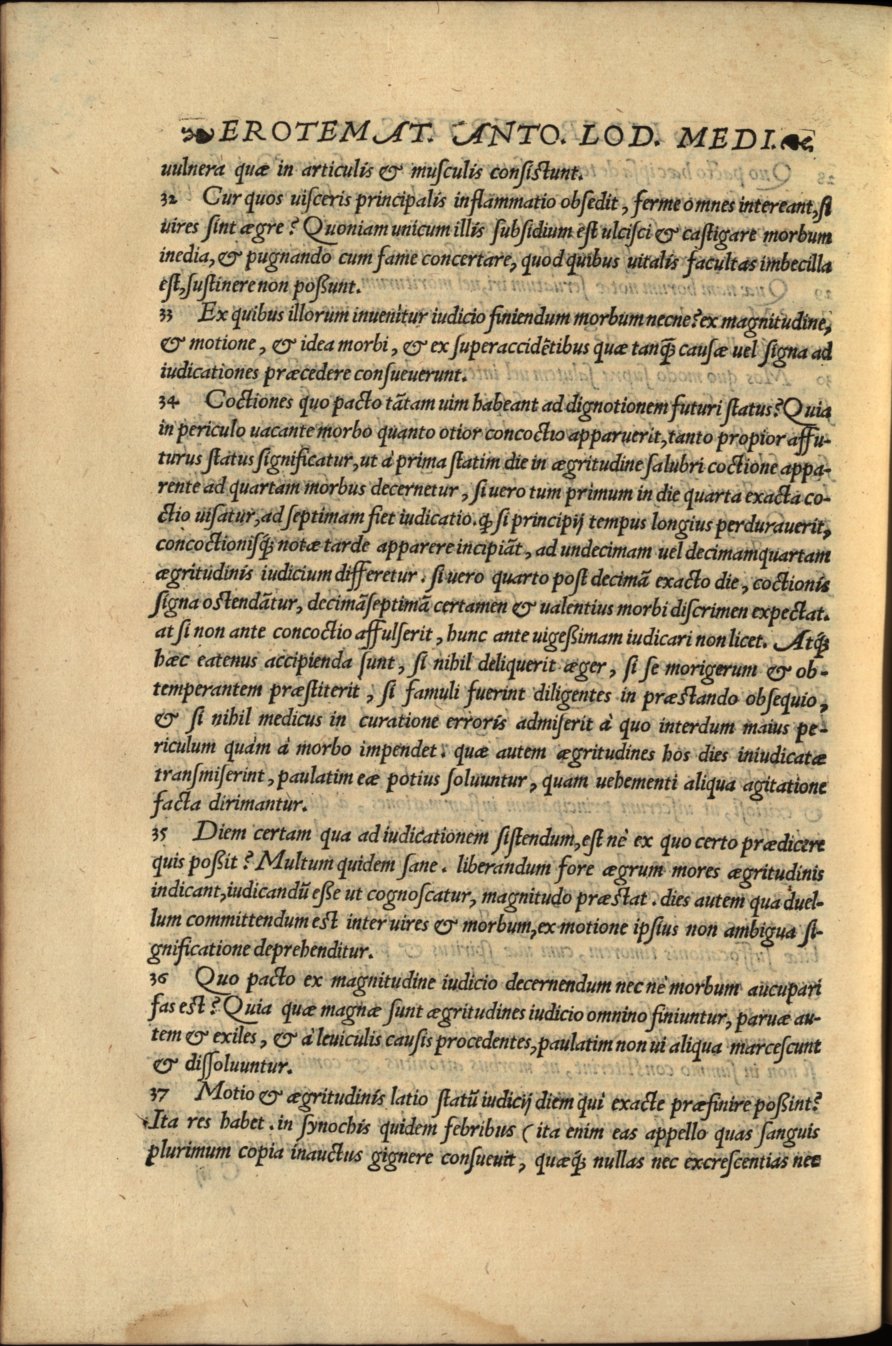 EROTEMAT. ANTO. LOD. MEDI.
uulnera quæ in articulis & musculis consistunt.
32 Cur quos uisceris principalis inflammatio obsedit, ferme omnes intereant, si
uires sint ægre? Quoniam unicum illis subsidium est ulcisci & castigare morbum
inedia, & pugnando cum fame concertare, quod quibus uitalis facultas imbecilla
est, sustinere non possunt.
33 Ex quibus illorum inuenitur iudicio finiendum morbum necne? ex magnitudine,
& motione, & idea morbi, & ex superaccidētibus quæ tanq̃ causæ uel signa ad
iudicationes præcedere consueuerunt.
34 Coctiones quo pacto tātam uim habeant ad dignotionem futuri status? Quia
in periculo uacante morbo quanto otior concoctio apparuerit, tanto propior affu-
turus status significatur, ut à prima statim die in ægritudine salubri coctione appa-
rente ad quartam morbus decernetur, si uero tum primum in die quarta exacta co-
ctio uisatur, ad septimam fiet iudicatio. ꝙ si principij tempus longius perdurauerit,
concoctionisq́; notæ tarde apparere incipiāt, ad undecimam uel decimamquartam
ægritudinis iudicium differetur. si uero quarto post decimā exacto die, coctionis
signa ostendātur, decimāseptimā certamen & ualentius morbi discrimen expectat.
at si non ante concoctio affulserit, hunc ante uigessimam iudicari non licet. Atq́;
hæc eatenus accipienda sunt, si nihil deliquerit æger, si se morigerum & ob-
temperantem præstiterit, si famuli fuerint diligentes in præstando obsequio,
& si nihil medicus in curatione erroris admiserit à quo interdum maius pe-
riculum quàm à morbo impendet. quæ autem ægritudines hos dies iniudicatæ
transmiserint, paulatim eæ potius soluuntur, quam uehementi aliqua agitatione
facta dirimantur.
35 Diem certam qua ad iudicationem sistendum, est nè ex quo certo prædicere
quis possit? Multum quidem sane. liberandum fore ægrum mores ægritudinis
indicant, iudicandū esse ut cognoscatur, magnitudo præstat. dies autem qua duel-
lum committendum est inter uires & morbum, ex motione ipsius non ambigua si-
gnificatione deprehenditur.
36 Quo pacto ex magnitudine iudicio decernendum nec nè morbum aucupari
fas est? Quia quæ magnæ sunt ægritudines iudicio omnino finiuntur, paruæ au-
tem & exiles, & à leuiculis causis procedentes, paulatim non ui aliqua marcescunt
& dissoluuntur.
37 Motio & ægritudinis latio statū iudicij diem qui exacte præfinire possint?
Ita res habet. in synochis quidem febribus (ita enim eas appello quas sanguis
plurimum copia inauctus gignere consueuit, quæq́; nullas nec excrescentias nec